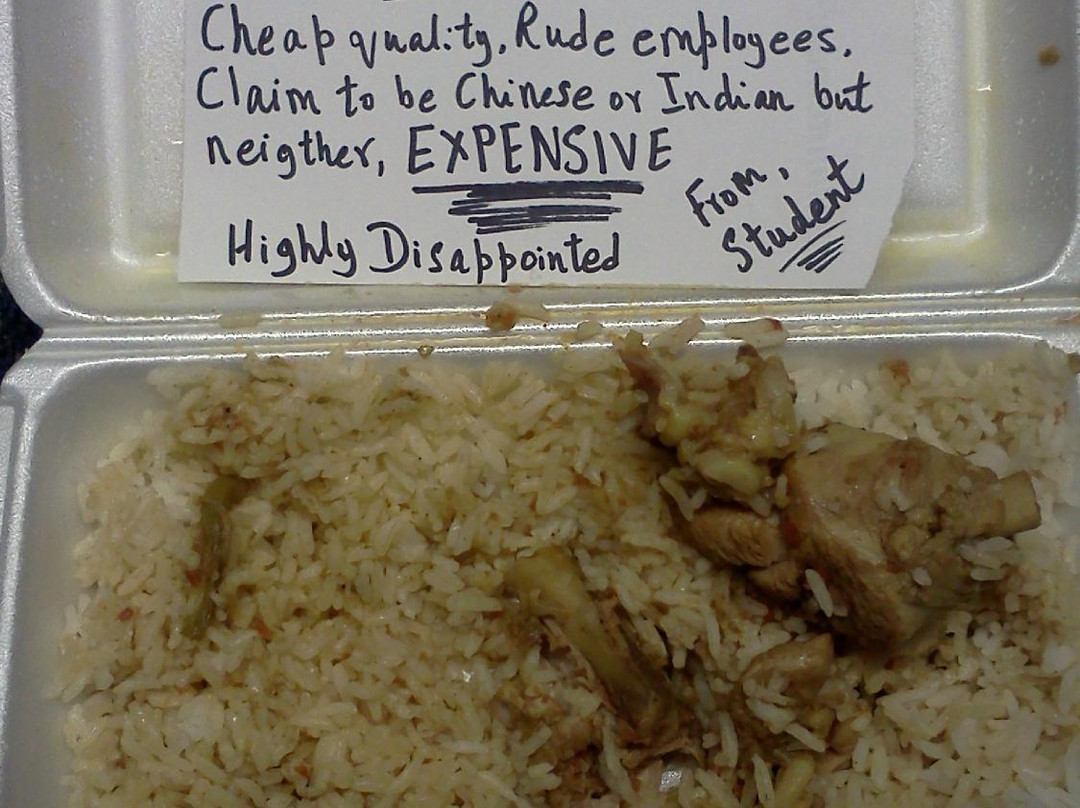 Cheap quality, Rude employees.
Claim to be Chinese or Indian but
neigther, EXPENSIVE
Highly Disappointed
From,
Student